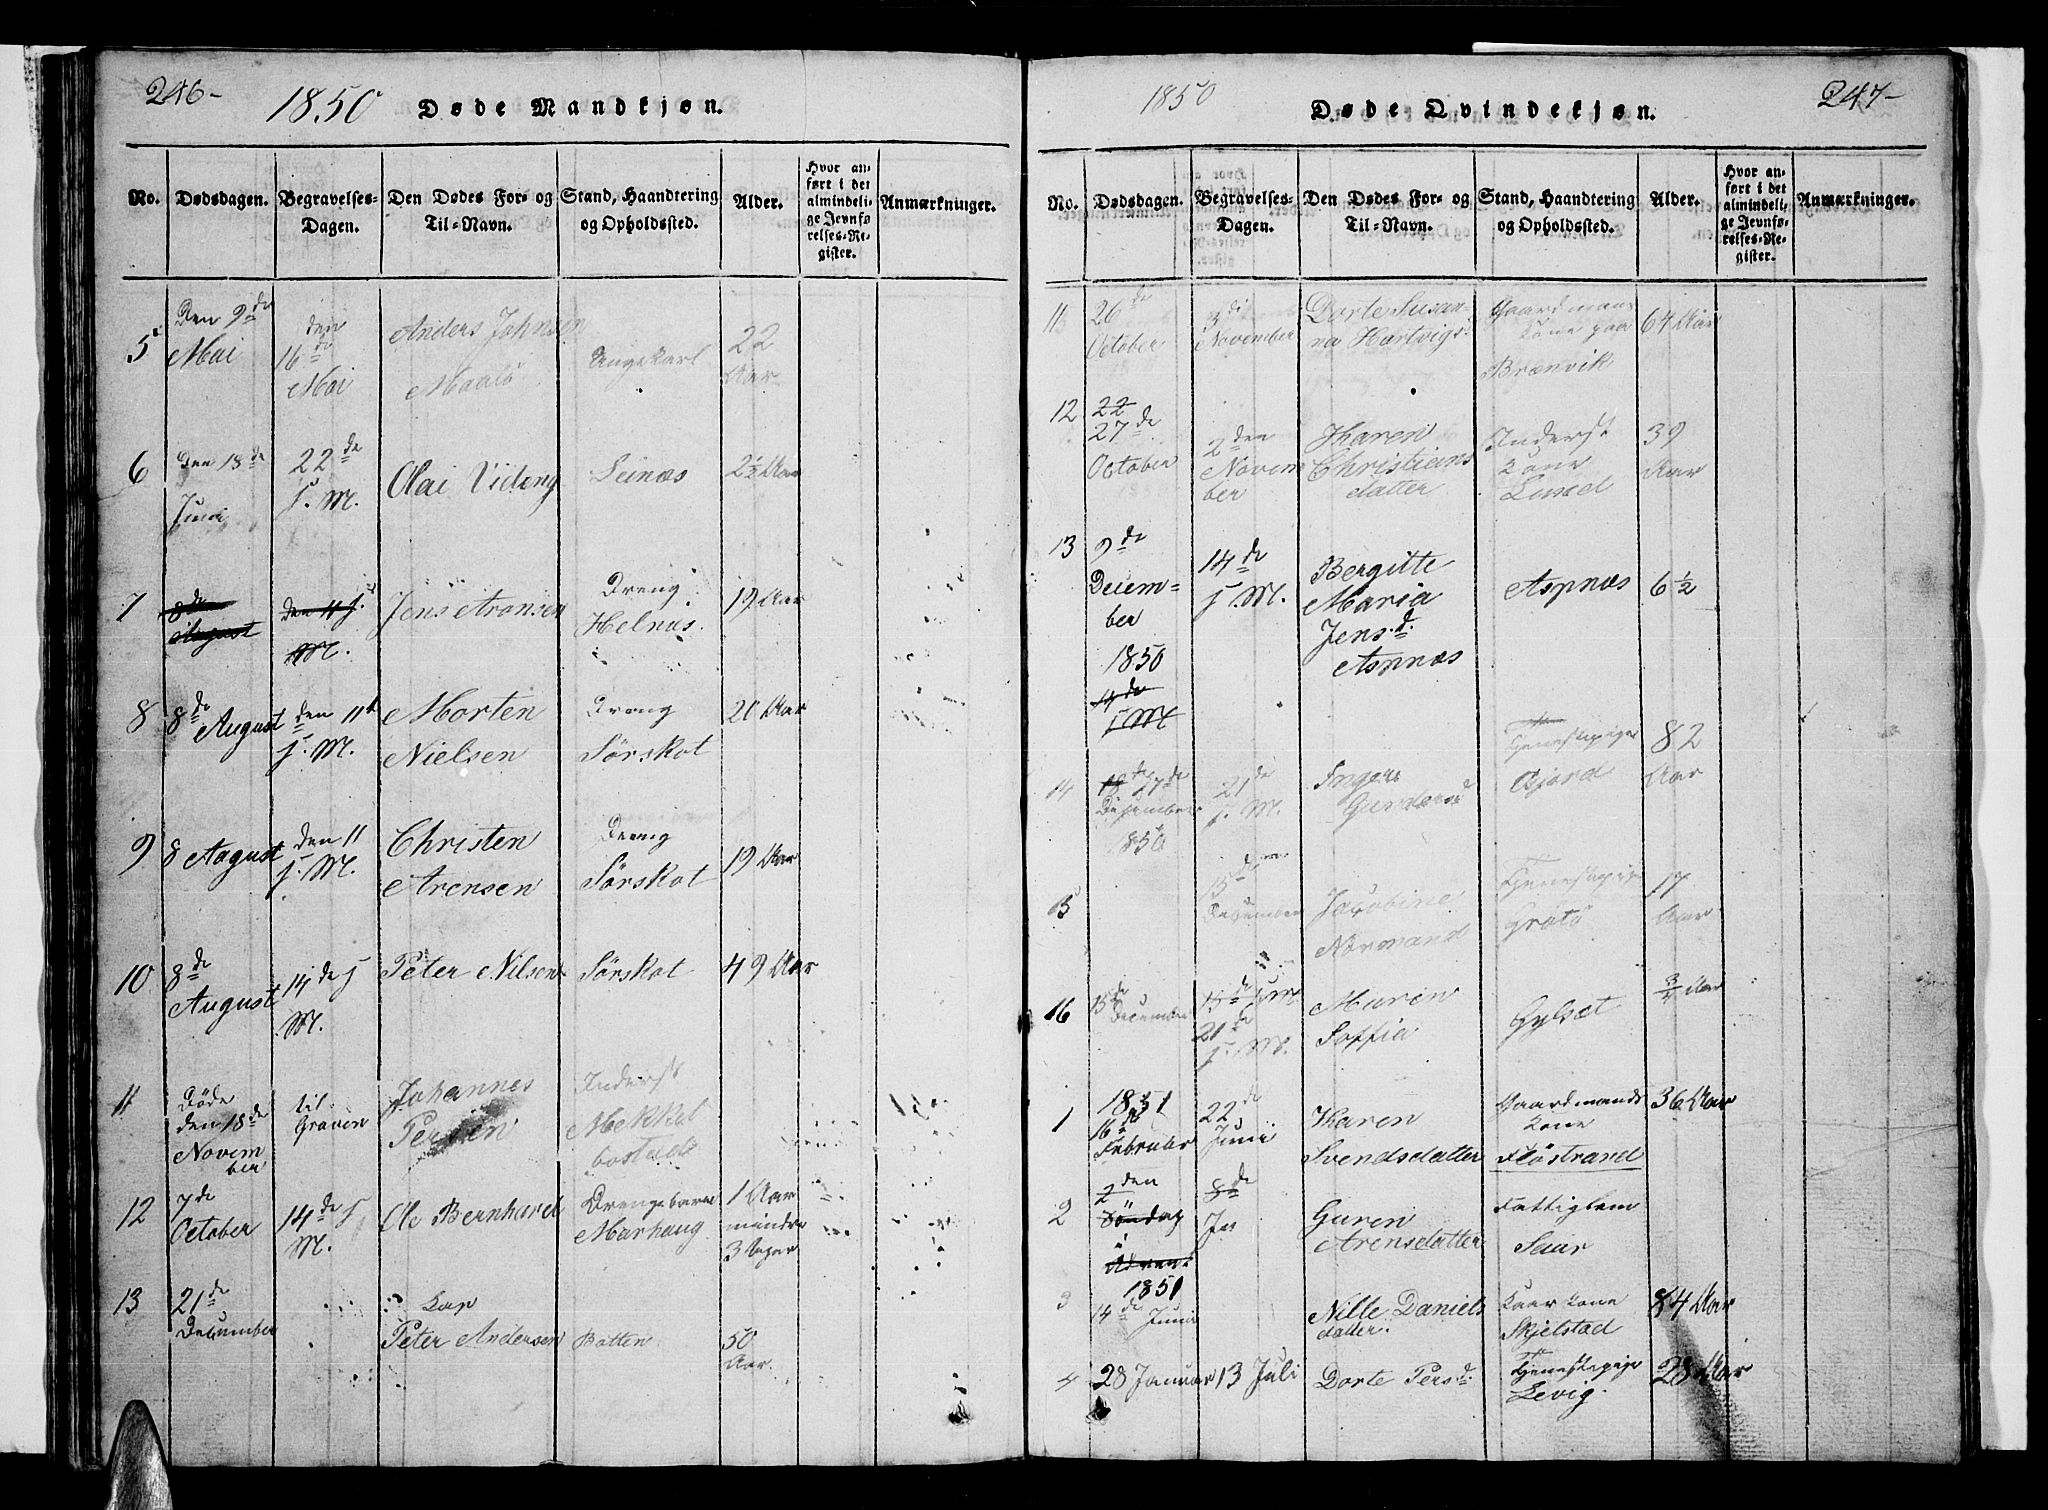 246-
1850 Døde Mandkjøn.
No.
Dødsdagen.
Begravelses-
Dagen.
Den Dødes For- og
Til-Navn.
Stand, Haandtering
og Opholdssted.
Alder.
Hvor an-
ført i det
almindeli-
ge Jevnfø-
relses-Re-
gister.
Anmærkninger.
5
Den 9de
Mai
den
16de
Mai
Anders Johnsen
Maalö
Ungekarl
22
Aar
6
Den 18de
Juni
22de
s. M.
Olai Viding
Leinæs
2½ Aar
7
8de
August
den 11 s.
M.
Jens Aronsen
Dreng
Helnæs
19 Aar
8
8de August
den 11te
s. M.
Morten
Nielsen
Dreng
Sörskot
20 Aar
9
8 August
den 11
s. M.
Christen
Arensen
Dreng
Sörskot
19 Aar
10
8de
August
14de s
M.
Peter Nilsen
Sörskot
49 Aar
11
Döde
den 18de
Novem
ber
til
Graven
Johannes
Persen
Inderst
Mekkel
bostad
12
7de
October
14de s
M.
Ole Bernhard
Drengebarn
Marhaug
1 Aar
mindre
3 Uger
13
21de
December
Lap
Peter Andersen
Botten
50
Aar.
1850
Døde Qvindekjøn.
247-
No.
Dødsdagen.
Begravelses-
Dagen.
Den Dødes For- og
Til-Navn.
Stand, Haandtering
og Opholdssted.
Alder.
Hvor an-
ført i det
almindeli-
ge Jevnfø-
relses-Re-
gister.
Anmærkninger.
11
26de
October
3di
November
Dorte Susan-
na Hartvigs.
Gaardmans
Kone paa
Brænvik
64 Aar
12
22
27de
October
2den
Novem
ber
Karen
Christians
datter
Inderst
Kone
39
Aar
13
9de
Decem-
ber
1850
4de
s M
14de
s. M.
Bergitte
Maria
Jens.d.
Aspnæs
Aspnæs
6½
14
18de 17de
December
1850
21de
s. M.
Inger
Tjenestepige
82
Aar
15
15den
December
Jacobine
Normand
Tjenestepige
Grötö
17
Aar
16
15de
December
15de s M
21de
s. M.
Maren
Soffia
Gylset
¾ Aar
1
1851
16de
Februar
22de
Juni
Karen
Svendsdatter
Gaardmands
Kone
Flöstrand
36 Aar
2
2den
Söndag
i
Adven.
8de
Js
Guren
Arensdatter
Fattiglem
Saur
3
1851
14de Juni
Nille Daniels
datter.
Kaar Kone
Skjelstad
84 Aar
4
28 Januar
13 Juli
Dorte Pers.d.
Tjenestepige
Levig.
28 Aar